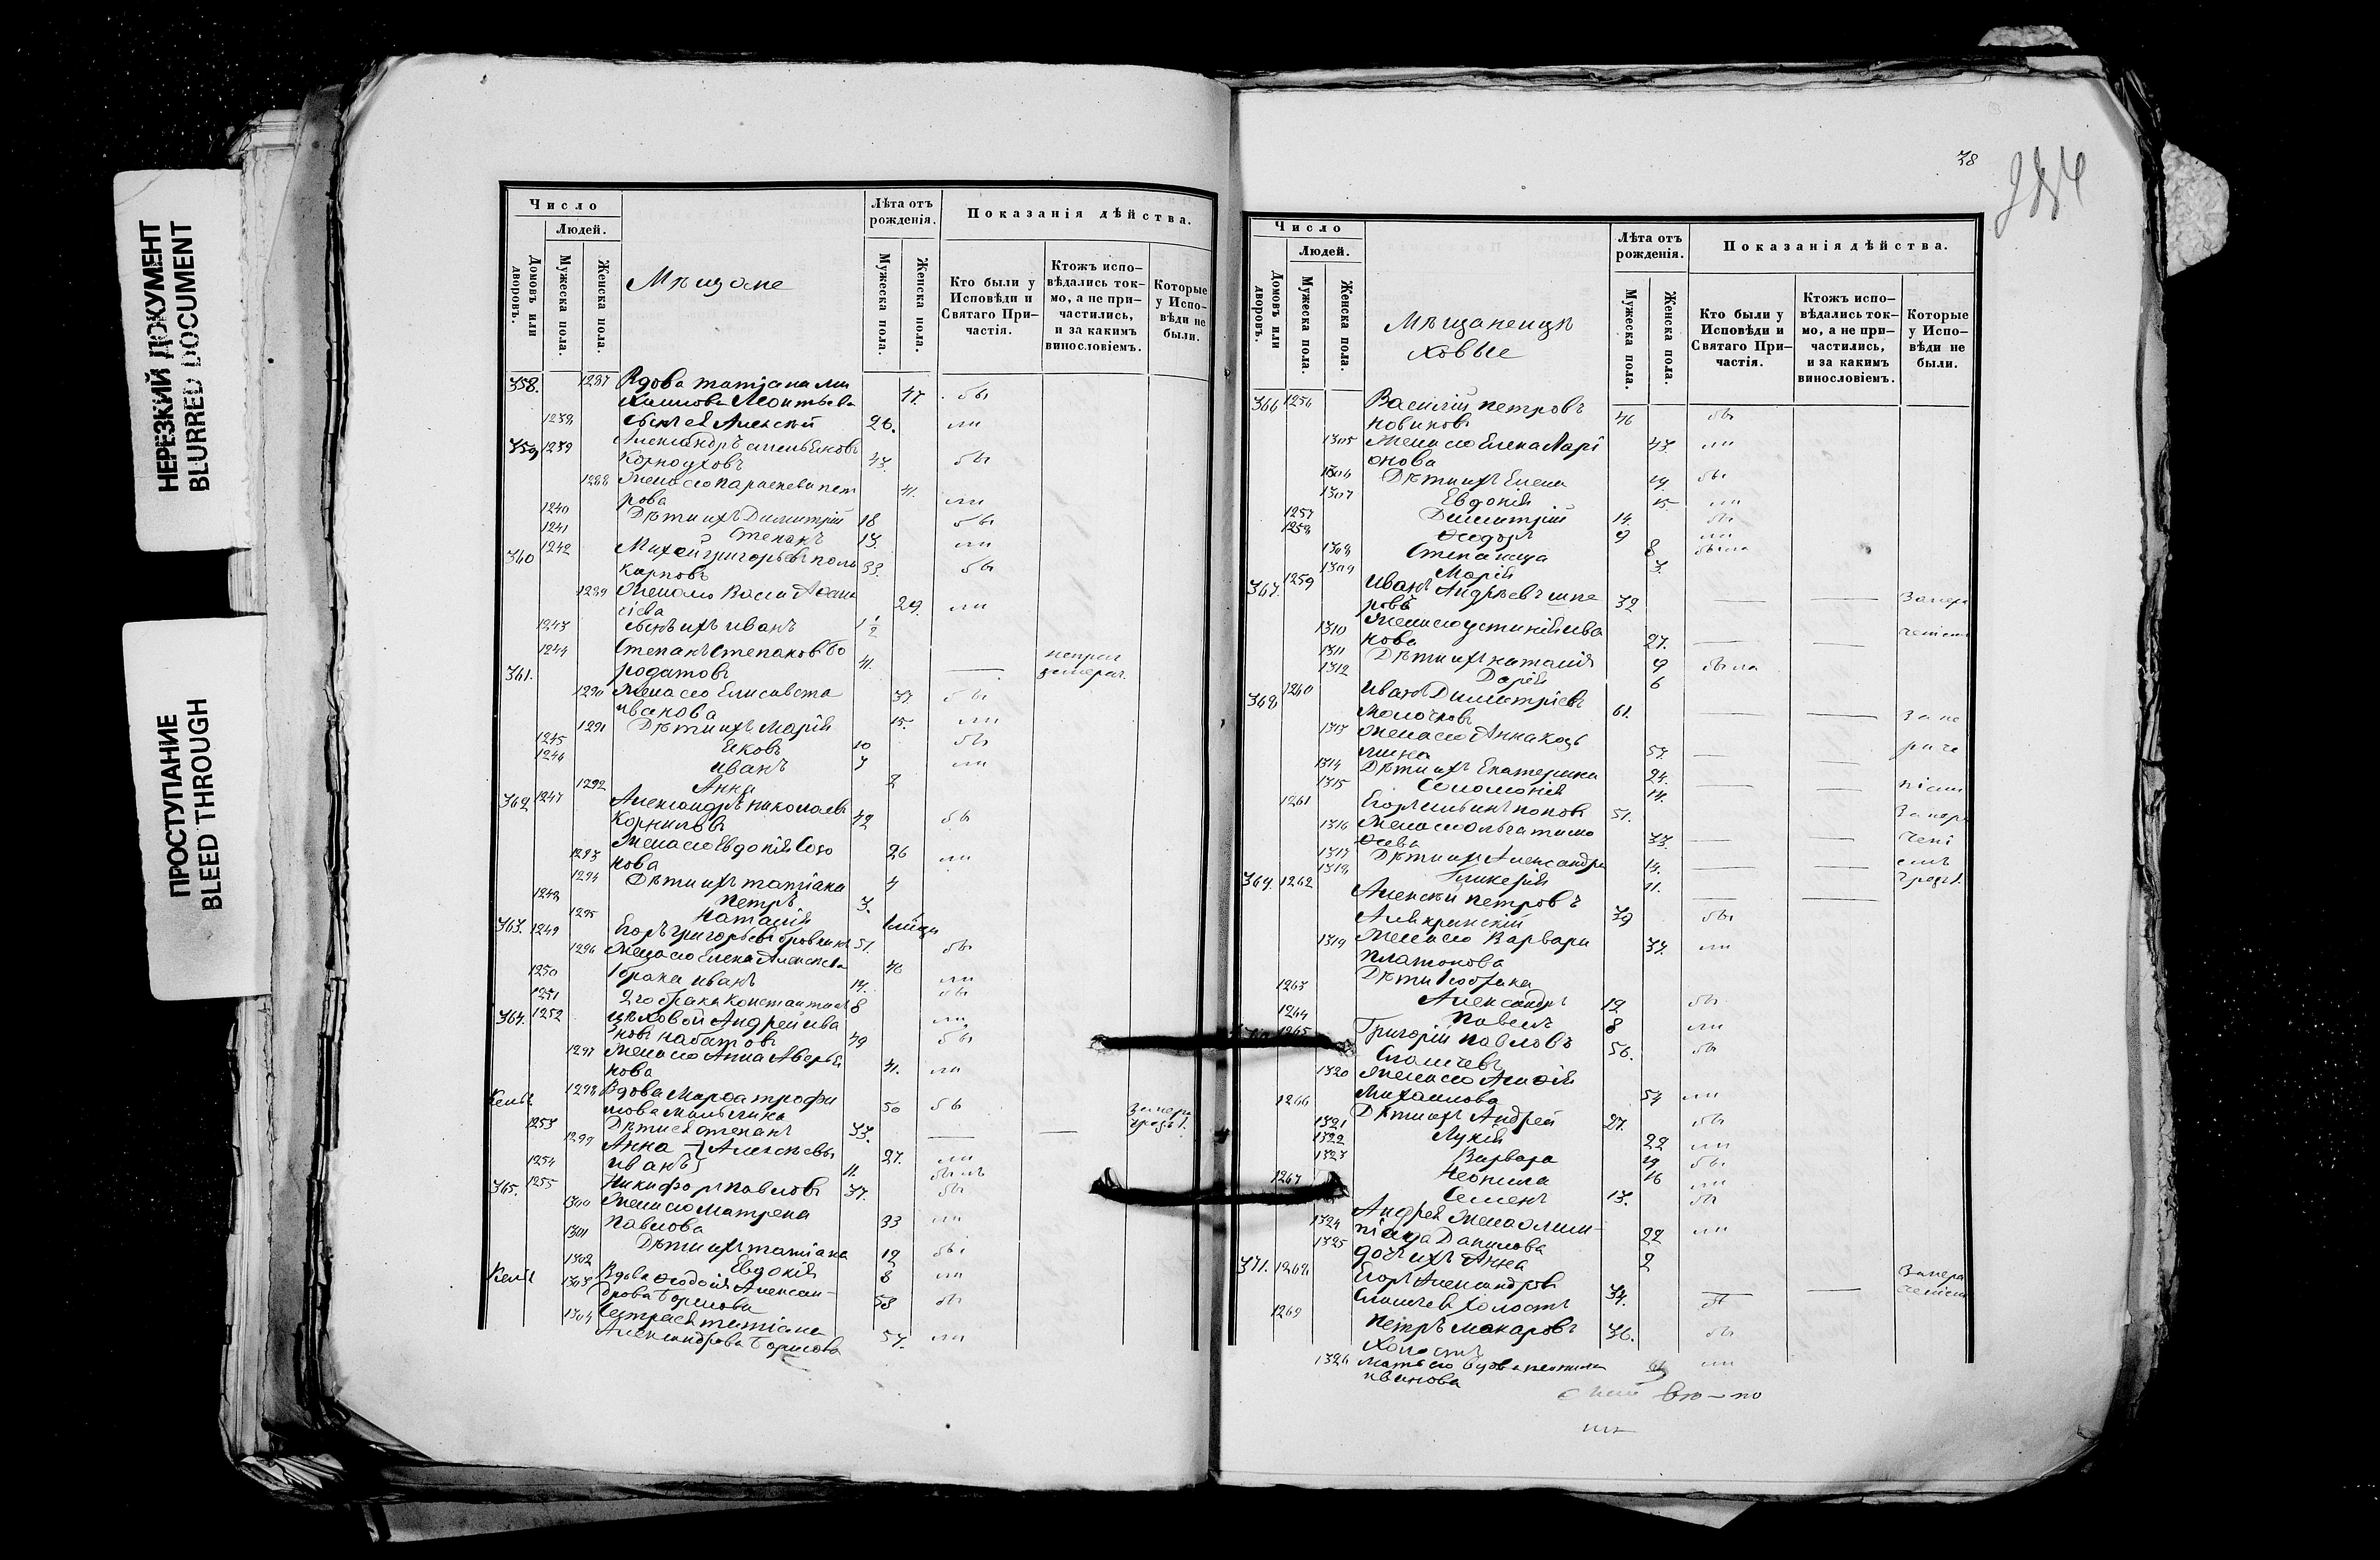 НЕРЕЗКИЙ ДОКУМЕНТ
BLURRED DOCUMENT
ПРОСТУПАНИЕ
BLEED THROUGH
Число
Людей.
Домовъ или дворовъ.
Мужеска пола.
Женска пола.
Мѣщане
Лѣта отъ рожденія.
Мужеска пола.
Женска пола.
Показанія дѣйства.
Кто были у Исповѣди и Святаго При-частія.
Ктожъ испо-вѣдались ток-мо, а не при-частились, и за какимъ винословіемъ.
Которые у Испо-вѣди не были.
358. 1287 Вдова татіана
Леонтьева 47. бы
1238 Сынъ ея Алексѣй 26. ли
359 1239 Александръ
Корноуховъ 43. бы
1288 Жена его Параскева пет
рова 41. ли
1240 Дѣти ихъ Димитрій 18 бы
1241 Степанъ 13. ли
360 1242 Михей григорьевъ поли
карповъ 33. бы
1289 Жена его Васса Афана
сіева 29. ли
1243 Сынъ ихъ иванъ 1 1/2
361. 1244 Степанъ Степановъ бо
родатовъ 41.
1290 Жена его Елисавета
иванова 37. бы
1291 Дѣти ихъ Марія 15. ли
1245 Яковъ 10 бы
1246 иванъ 7 ли
1292 Анна 2
362 1247 Александръ николаевъ
Корниловъ 42 бы
1293 Жена его Евдокія Созо
нова 26 ли
1294 Дѣти ихъ татіана 4
1248 петръ 3.
1295 Наталія
363. 1249 Егоръ григорьевъ 51. бы
1296 Жена его Елена Алексѣева 40 ли
1250 1 брака иванъ 14. бы
1251 2го брака Константинъ 8 ли
364. 1252 цѣховой Андрей ива
новъ набатовъ 49 бы
1297 Жена его Анна Аверья
нова 41. ли
1298 Вдова Марфа трофи
мова 50 бы
1253 Дѣти ея степанъ 33.
1299 Анна } Алексѣевы 27. ли
1254 иванъ 11. былъ
365. 1255 Никифоръ павловъ 37. бы
1300 Жена его Матрена
Павлова 33 ли
1301 Дѣти ихъ татіана 12 бы
1302 Евдокія 8 ли
1303 Вдова Феодосія Алексан-
дрова Борисова 58 бы
1304 Сестра ея татіана
Александрова Борисова 57. ли
38
Число
Людей.
Домовъ или дворовъ.
Мужеска пола.
Женска пола.
Мѣщане и цѣ
ховые
Лѣта отъ рожденія.
Мужеска пола.
Женска пола.
Показанія дѣйства.
Кто были у Исповѣди и Святаго При-частія.
Ктожъ испо-вѣдались ток-мо, а не при-частились, и за какимъ винословіемъ.
Которые у Испо-вѣди не были.
366 1256 Василій петровъ
новиковъ 46 бы
1305 Жена его Елена Ларі
онова 43. ли
1306 Дѣти ихъ Елена 19. бы
1307 Евдокія 15. ли
1257 Димитрій 14. бы
1258 Феодоръ 9 ли
1308 Степанида 8 была
1309 Марія 3.
367. 1259 иванъ Андреевъ
32
1310 Жена его устинія ива
нова 27.
1311 Дѣти ихъ наталія 9 была
1312 Дарія 6
368 1260 иванъ Димитріевъ
Молочковъ 61.
1313 Жена его Анна Козь
мина 57.
1314 Дѣти ихъ Екатерина 24.
1315 Соломонія 14.
1261 Егоръ поповъ 51.
1316 Жена его Ольга тимо
феева 33.
1317 Дѣти ихъ Александра 14.
1318 Гликерія 11.
369. 1262 Алексѣй петровъ
39 бы
1319 Жена его Варвара
Платонова 37. ли
Дѣти 1го брака
1263 Александръ 12 бы
1264 Павелъ 8 ли
1265 Григорій павловъ
56. бы
1320 Жена его
Михаилова 54 ли
1266 Дѣти ихъ Андрей 27. бы
1321 Лукія 22 ли
1322 Варвара 19 бы
1323 Неонила 16 ли
1267 Семенъ 13. бы
1324 Андрея Жена Олим-
піада Данилова 22 ли
1325 дочь ихъ Анна 2
371. 1268 Егоръ Александровъ
холостъ 34.
1269 Петръ Макаровъ
Холостъ 36. бы
1326 Мать его вдова
иванова ли